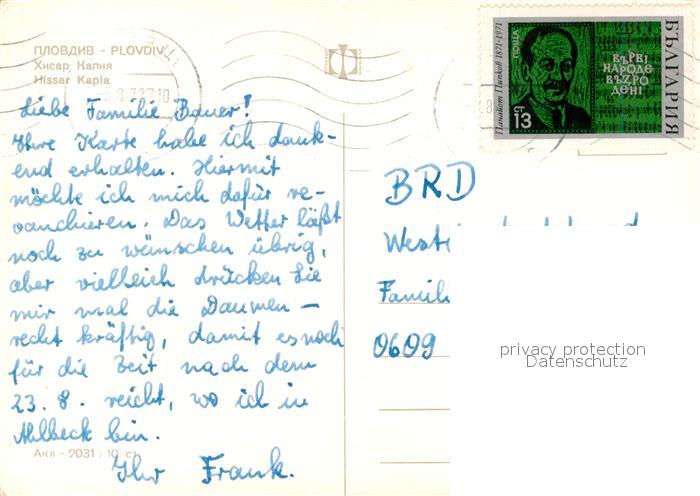 ПЛОВДИВ - PLOVDIV
Хисар Капия
Hissar Kapia
Liebe Familie Bauer!
Ihre Karte habe ich dank-
end erhalten. Hiermit
möchte ich mich dafür re-
vanchieren. Das Wetter läßt
noch zu wünschen übrig,
aber vielleich drücken Sie
mir mal die Daumen –
recht kräftig, damit es noch
für die Zeit nach dem
23. 8. reicht, wo ich in
Ahlbeck bin.
Ihr Frank.
Акл - 2031 / 10 ст.
Панайот Пипков 1871-1971
ПОЩА
СТ 13
ВЪРВИ
НАРОДЕ
ВЪЗРО
ДЕНИ
БЪЛГАРИЯ
BRD
West
Famil
0609
privacy protection
Datenschutz